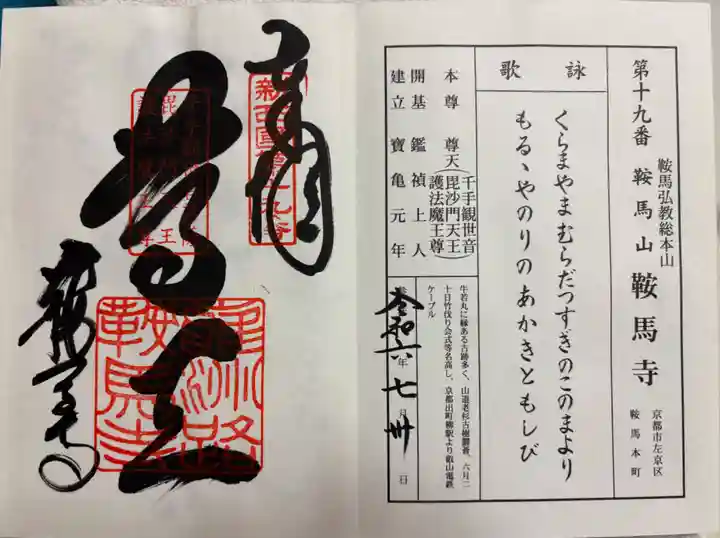 第十九番 鞍馬山 鞍馬寺
鞍馬弘教総本山
京都市左京区
鞍馬本町
詠歌
くらまやま むらだつすぎのこのまより
もるゝやのりの あかきともしび
本尊 尊天(千手観世音
毘沙門天王
護法魔王尊)
開基 鑑禎上人
建立 寶亀元年
牛若丸に縁ある古跡多く、山道老杉古樹鬱蒼、六月二
十日竹伐り会式等名高し、京都出町柳駅より叡山電鉄
ケーブル
令和六年七月卅日
奉拝
新西国第十九番
尊天
鞍馬寺